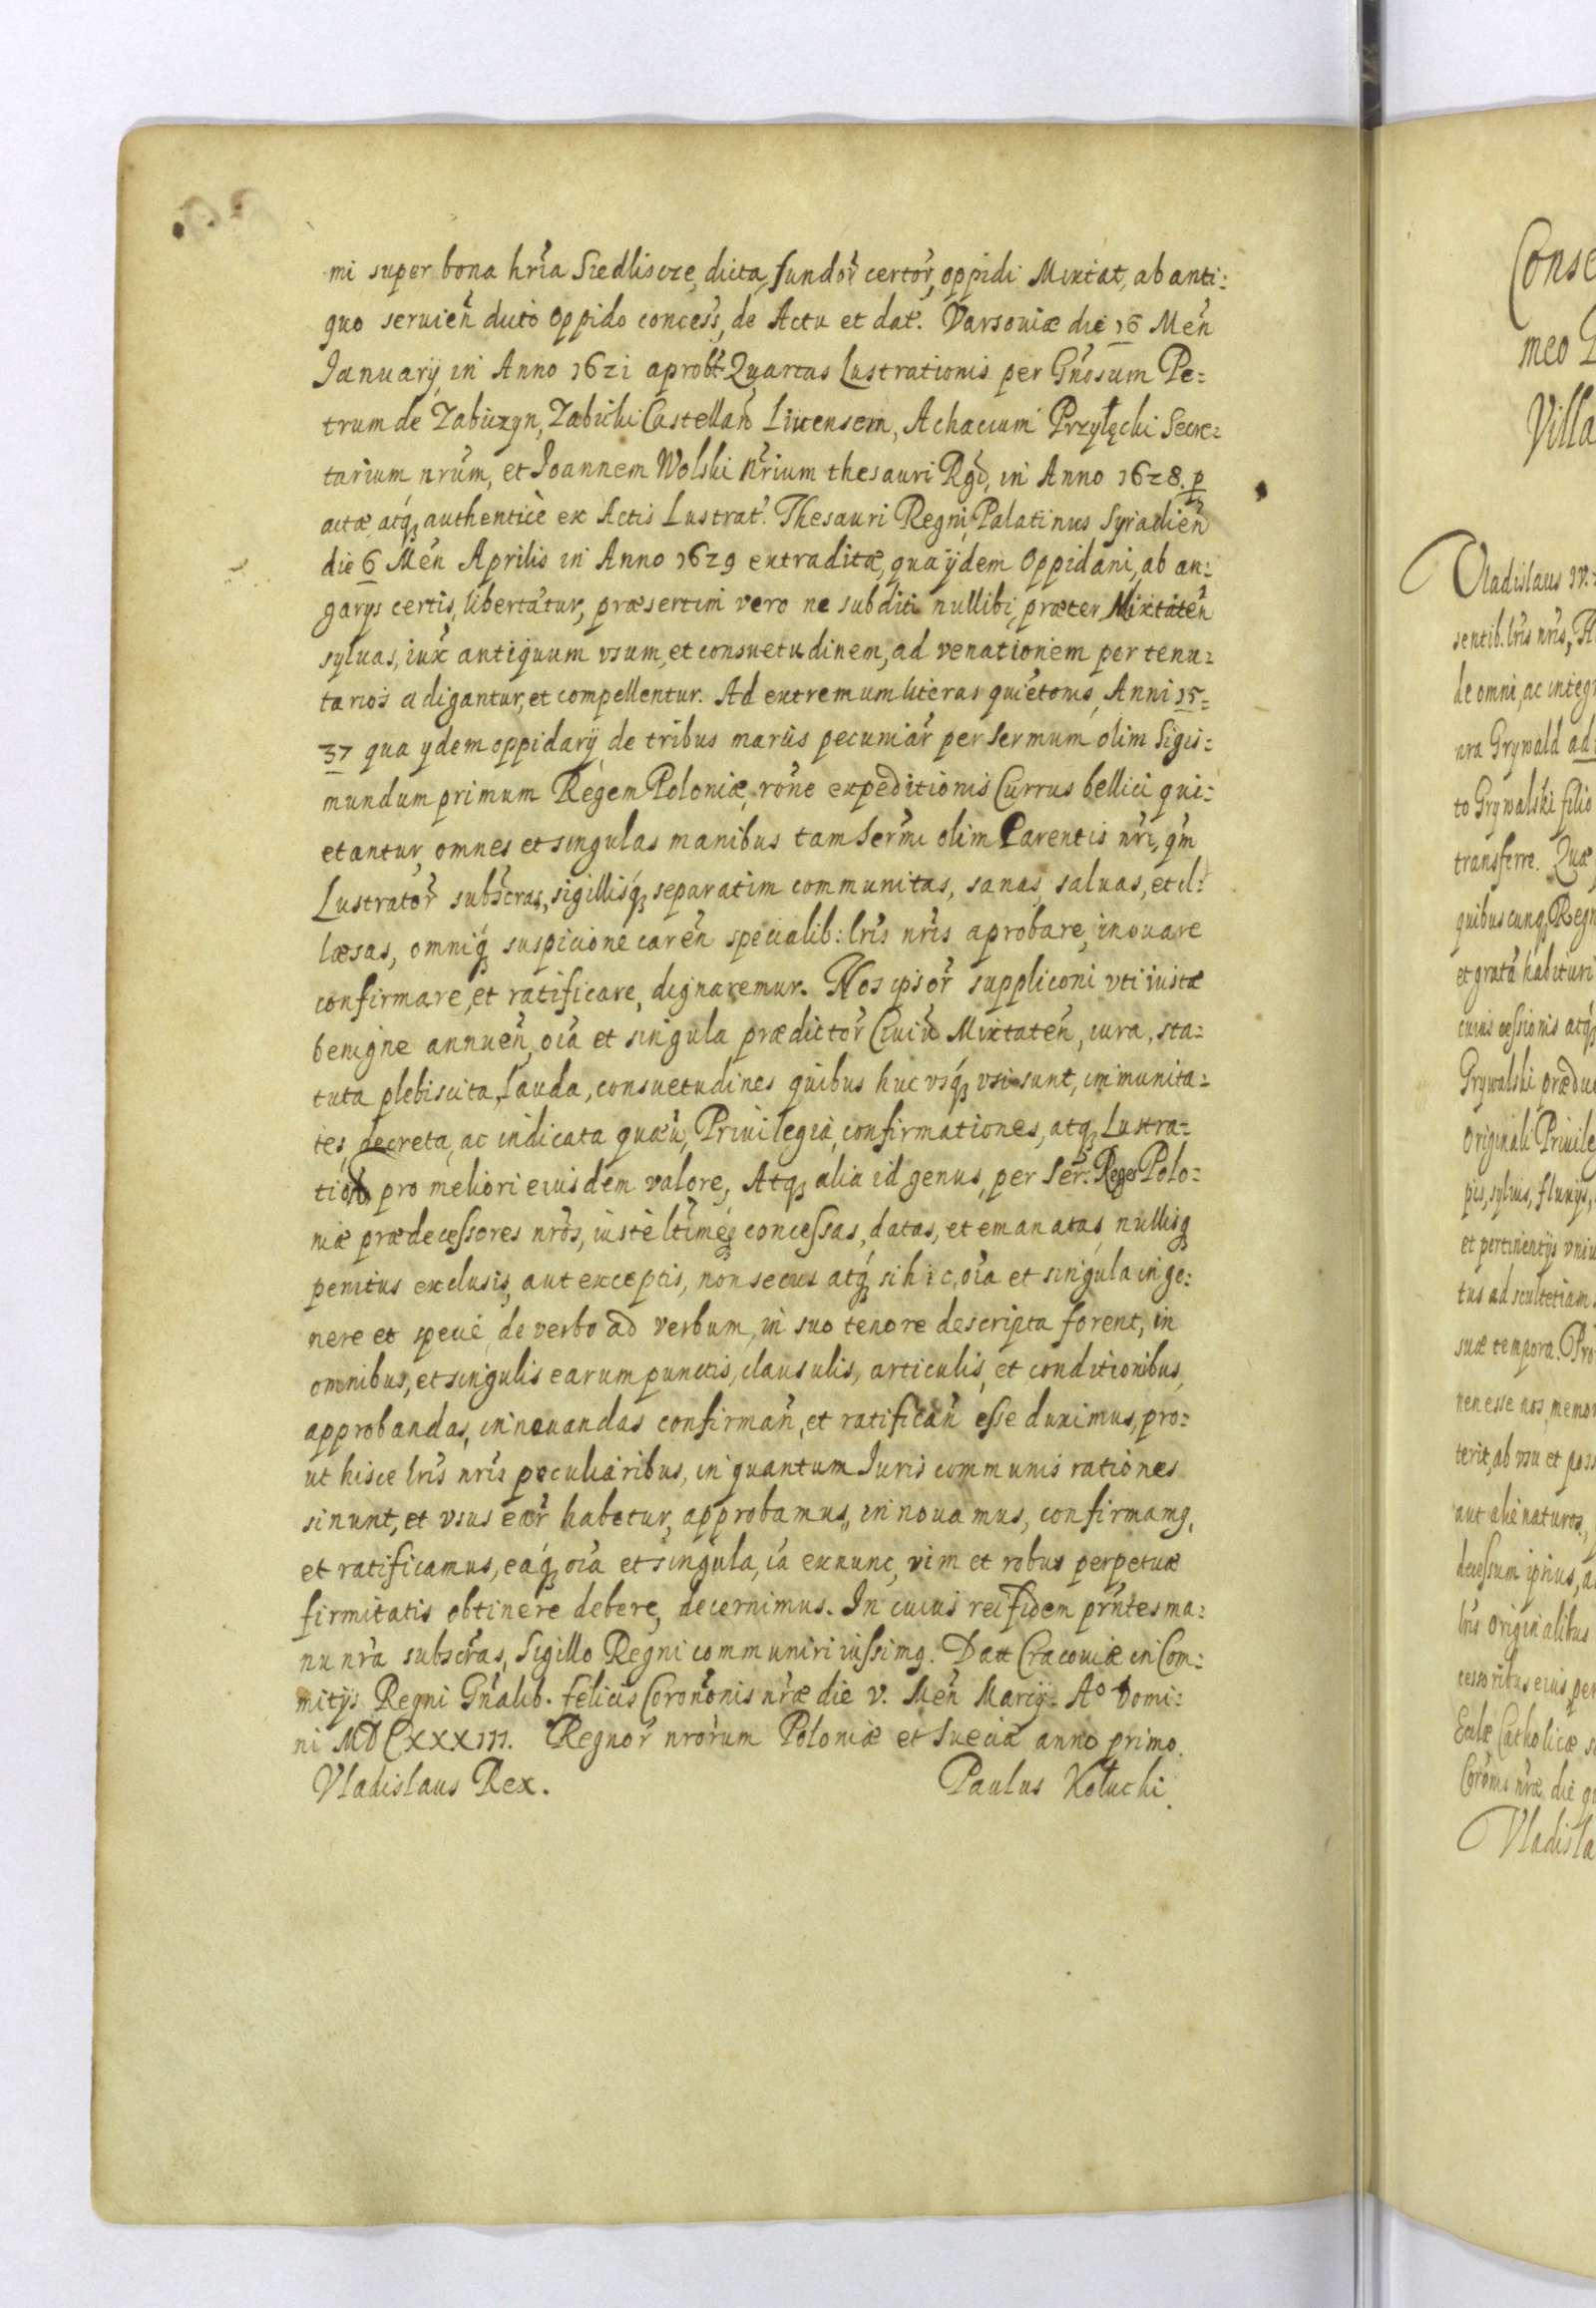 mi super bona hr̃ia Siedliscze, dicta, fundor̃ certor̃, oppidi Mixtat, ab anti:
quo seruien̄ dicto oppido concess̃, de Actu et dat̃. Varsouiæ die 16 Men̄
Ianuarÿ in Anno 1621 aprobt̃. Quartas Lustrationis per Gñosum Pe:
trum de Zabiczyn, Zabicki Castellan̄ Liuensem, Achacium Przyłęcki Secre:
tarium nrũm, et Ioannem Wolski Nr̃ium thesauri Rg̃d, in Anno 1628. p
actæ atq; authenticè ex Actis Lustrat̃. Thesauri Regni, Palatinus Syradien̄
die 6 Men̄ Aprilis in Anno 1629 extraditæ, qua ÿdem Oppidani, ab an:
garÿs certis, libertãtur, præsertim vero ne subditi nullibi, præter Mixtaten̄
syluas, iux̃ antiquum vsum, et consuetudinem, ad venationem per tenu:
tarios adigantur, et compellentur. Ad extremum literas quietonis, Anni 15:
37 qua ÿdem oppidarÿ de tribus marcis pecuniar̃ per Sermum olim Sigis:
mundum primum Regem Poloniæ, rõne expeditionis Currus bellici qui:
etantur, omnes et singulas manibus tam Serm̃i olim Parentis nr̃i, qm̃
Lustrator̃ subscras, sigillisq; separatim communitas, sanas, saluas, et il:
læsas, omniq; suspicione caren̄ specialib: lris̃ nris̃ aprobare, inouare
confirmare, et ratificare, dignaremur. Nos ipsor̃ suppliconi vti iustæ
benigne annuen̄, oĩa et singula prædictor̃ Ciuiũ Mixtaten̄, iura, sta:
tuta plebiscita, lauda, consuetudines quibus huc vsq; vsi sunt, immunita:
tes, decreta, ac indicata quæũ, Priuilegia, confirmationes, atq; Lustra:
tion̄ pro meliori eiusdem valore, Atq; alia id genus, per Ser: Reges Polo:
niæ prædecessores nrõs, iustè ltĩmeq; concessas, datas, et emanatas, nullisq;
penitus exclusis, aut exceptis, non secus atq; si hic, oĩa et singula in ge:
nere et specie, de verbo ad verbum, in suo tenore descripta forent, in
omnibus, et singulis earum punctis, clausulis, articulis, et conditionibus,
approbandas, innouandas confirman̄, et ratifican̄ esse duximus, pro:
ut hisce lris̃ nris̃ peculiaribus, in quantum Iuris communis rationes
sinunt, et vsus ear̃ habetur, approbamus, innouamus, confirmamq,
et ratificamus, eaq; oĩa et singula, iã exnunc, vim et robus perpetuæ
firmitatis obtinere debere, decernimus. In cuius rei fidem prñtes ma:
nu nrã subscrãs, Sigillo Regni communiri iussimq. Datt Cracouiæ in Com:
mitÿs Regni Gñalib. felicis Coronõnis nr̃æ die V. Men̄ Marcÿ. Aº Domi:
ni MDCXXXIII. Regnor̃ nrorum Poloniæ et Sueciæ anno primo.
Vladislaus Rex. Paulus Kołucki.
Conse
meo
Villa
Vladislaus IV.:
sentib. lris̃ nris̃,
de omni, ac integr
nra Grywałd ad
to Grywalski filio
transferre. Quæ
quibuscunq; Regn
et gratã habituri
cuius cessionis atq;
Grywalski prædic
Originali Priuile
pis, syluis, fluuÿs,
et pertinentÿs vniu
tus ad scultetiam
suæ tempora. Pro
uen esse nos, memor
terit, ab vsu et poss
aut alienaturos,
decessum ipsius, a
lris̃ originalibus
cessoribus eius per
Eccłæ Catholicæ
Corõnis nr̃æ die
Vladisla